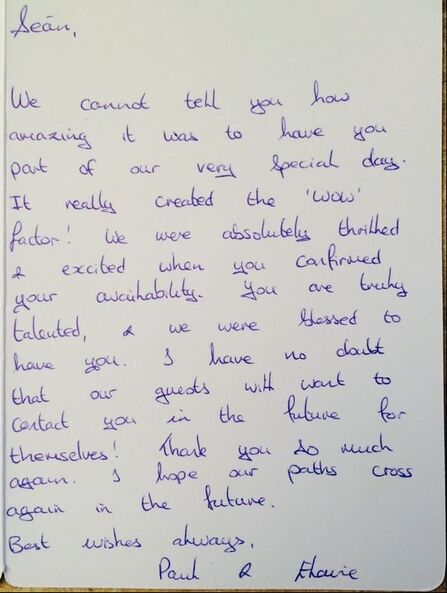 Seán,
We cannot tell you how
amazing it was to have you
part of our very special day.
It really created the 'WOW'
factor! We were absolutely thrilled
& excited when you confirmed
your availability. You are truly
talented, & we were blessed to
have you. I have no doubt
that our guests will want to
contact you in the future for
themselves! Thank you so much
again. I hope our paths cross
again in the future.
Best wishes always,
Paul &